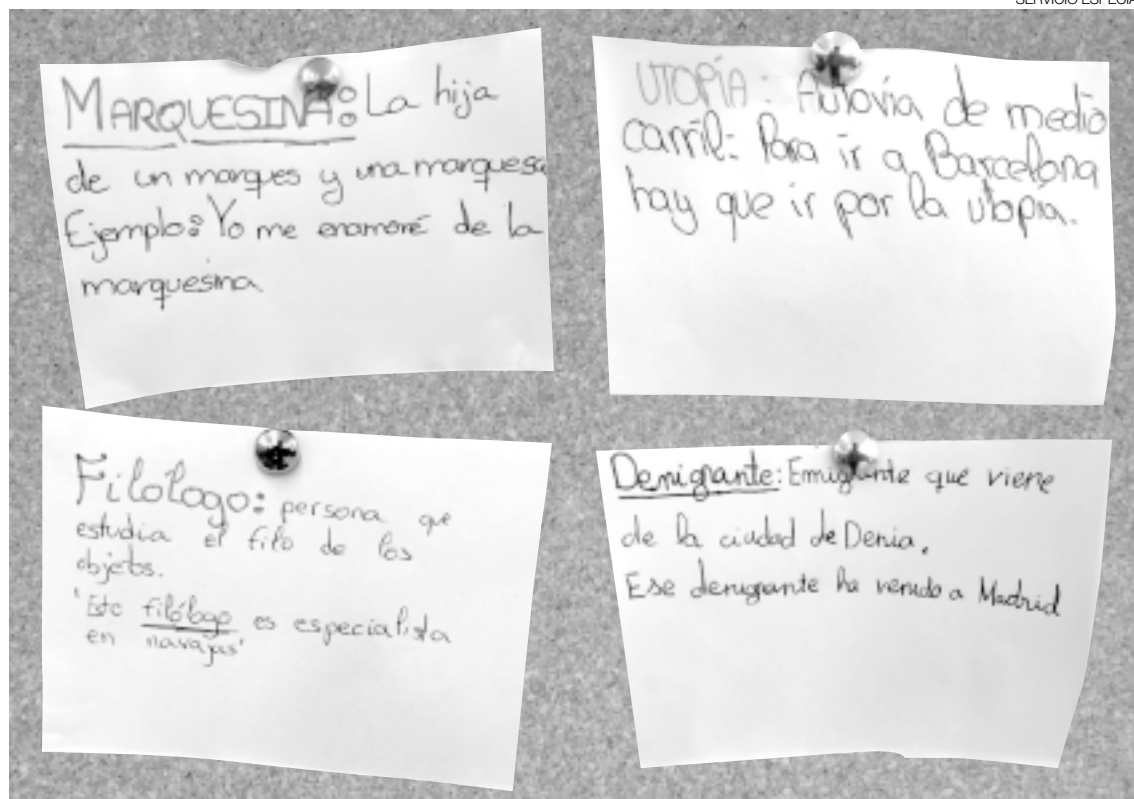 SERVICIO ESPECIA
MARQUESINA: La hija
de un marques y una marquesa
Ejemplo: Yo me enamoré de la
marquesina
UTOPÍA: Autovía de medio
carril: Para ir a Barcelona
hay que ir por la utopía.
Filólogo: persona que
estudia el filo de los
objetos.
'Este filólogo es especialista
en navajas'
Denigrante: Emigrante que viene
de la ciudad de Denia.
Ese denigrante ha venido a Madrid